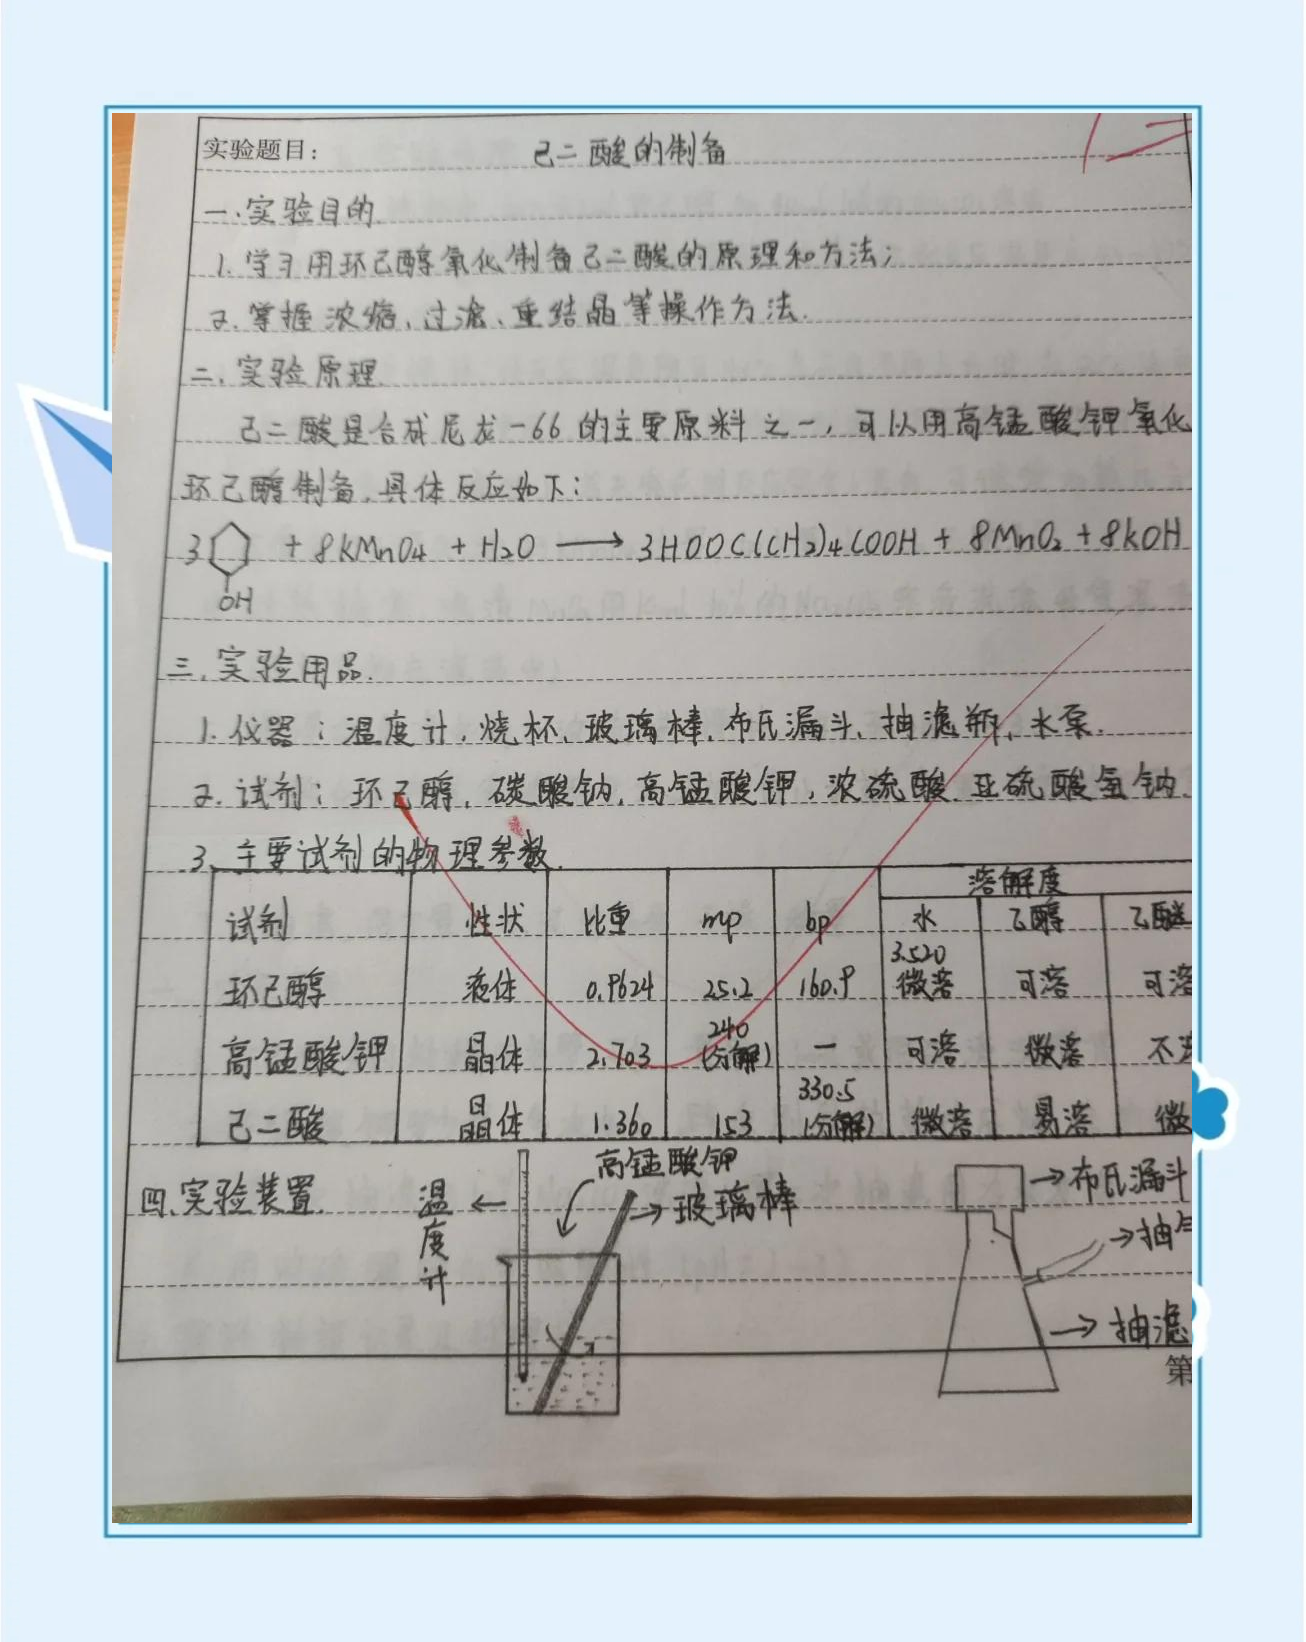 实验题目： 己二酸的制备
一.实验目的.
1. 学习用环己醇氧化制备己二酸的原理和方法;
2. 掌握浓缩、过滤、重结晶等操作方法.
二.实验原理.
己二酸是合成尼龙-66的主要原料之一,可以用高锰酸钾氧化
环己醇制备,具体反应如下:
3 + 8KMnO4 + H2O ⟶ 3HOOC(CH2)4COOH + 8MnO2 + 8KOH
OH
三.实验用品.
1. 仪器: 温度计, 烧杯、玻璃棒, 布氏漏斗、抽滤瓶、水泵.
2. 试剂: 环己醇, 碳酸钠, 高锰酸钾, 浓硫酸. 亚硫酸氢钠.
3. 主要试剂的物理参数.
试剂 性状 比重 mp bp 溶解度
水 乙醇 乙醚
环己醇 液体 0.9624 25.2 160.9 3.520 微溶 可溶 可溶
高锰酸钾 晶体 2.703 240 (分解) — 可溶 微溶 不
己二酸 晶体 1.360 153 330.5 (分解) 微溶 易溶 微
四.实验装置.
温度计
高锰酸钾
玻璃棒
布氏漏斗
抽
抽滤
第